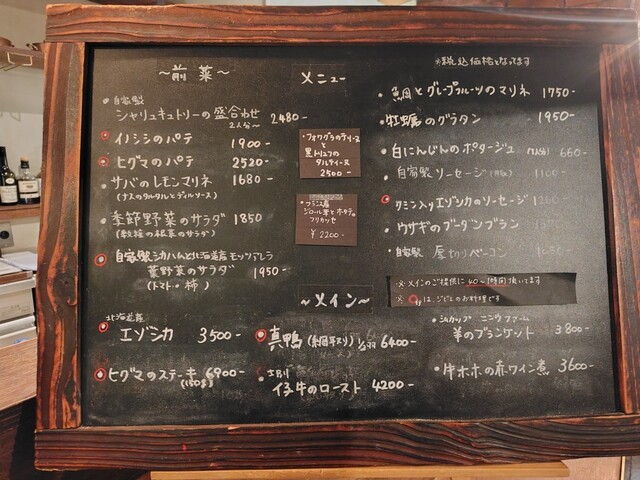 ※税込価格となってます
～前菜～
メニュー
自家製
シャリュキュトリーの盛合わせ 2480-
2人分～
イノシシのパテ 1900-
ヒグマのパテ 2520-
サバのレモンマリネ 1680-
(ナスのタルタルとディーヌ)
季節野菜のサラダ 1850
(数種の根菜のサラダ)
自家製シカハムと北海道産モッツアレラ
葉野菜のサラダ 1950-
(トマト・柿)
・フォワグラのテリーヌ
と
黒トリュフの
タルティーヌ
2500-
・フランス産
ジロール茸とホタテの
フリカッセ
¥2200-
鯛とグレープフルーツのマリネ 1750-
牡蠣のグラタン 1950-
白にんじんのポタージュ (1人分) 660-
自家製 ソーセージ 1100-
クミン入りエゾシカのソーセージ
ウサギのブーダンブラン
自家製 厚切りベーコン
※メインのご提供に40～1時間頂いてます
※○は、ジビエのお料理です
～メイン～
北海道産
エゾシカ 3500-
ヒグマのステーキ 6900-
(150g)
真鴨 1/2羽 6400-
士別
仔牛のロースト 4200-
シカップ ニニウファーム
羊のブランケット 3800-
牛ホホの赤ワイン煮 3600-